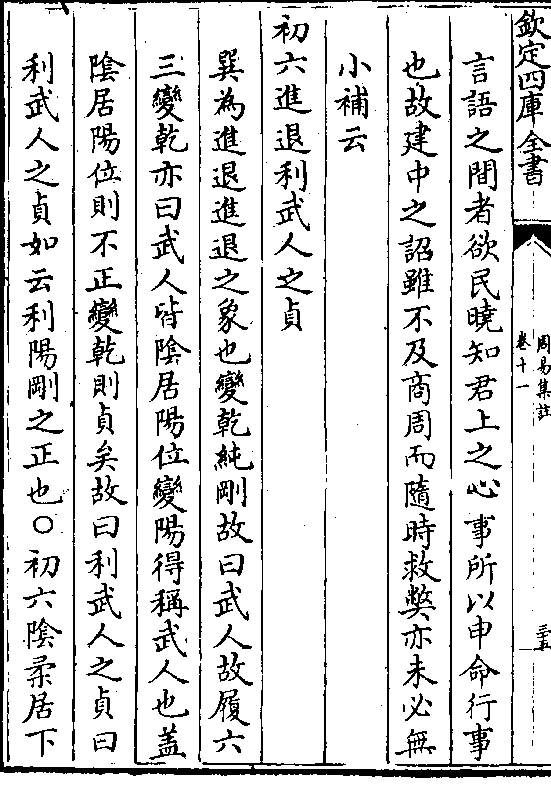 欽定四庫全書
周易集註
卷十一
三五
言語之間者欲民曉知君上之心事所以申命行事
也故建中之詔雖不及商周而隨時救弊亦未必無
小補云
初六進退利武人之貞
巽為進退進退之象也變乾純剛故曰武人故履六
三變乾亦曰武人皆陰居陽位變陽得稱武人也蓋
陰居陽位則不正變乾則貞矣故曰利武人之貞曰
利武人之貞如云利陽剛之正也○初六陰柔居下